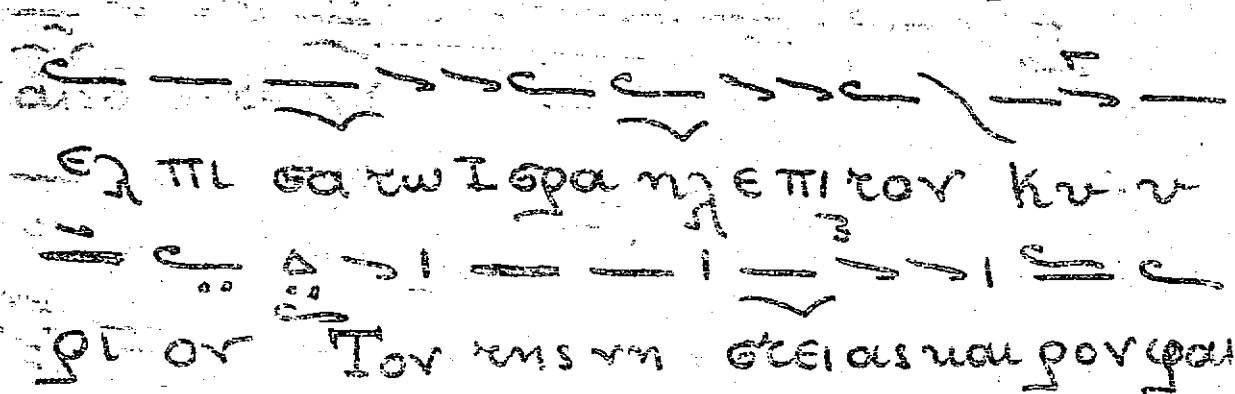 Ελ πι σα τω Ισρα ηλ επι τον Κυ υ
ρι ον Τον της νη στειας και ρον φαι